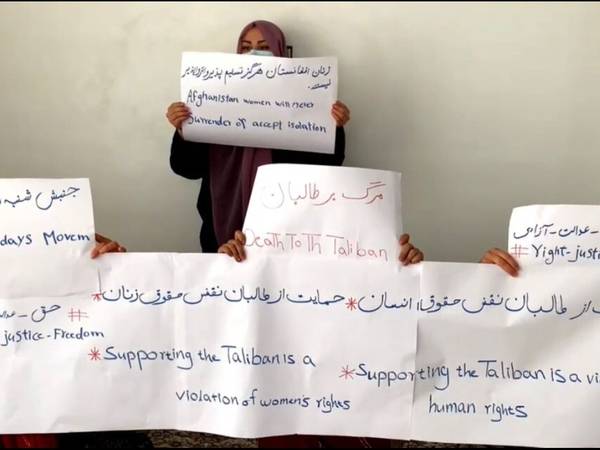 زنان افغانستان هرگز تسلیم پذیر و انزوا پذیر
نیستند.
Afghanistan women will never
Surrender of accept isolation
جنبش شنبه
days Movem
مرگ بر طالبان
Death To Th Taliban
عدالت - آزادی
#Yight-justic
# حق - عدا
justice-Freedom
*حمایت از طالبان نقض حقوق زنان
*Supporting the Taliban is a
violation of women's rights
از طالبان نقض حقوق انسان*
*Supporting the Taliban is a vi
human rights